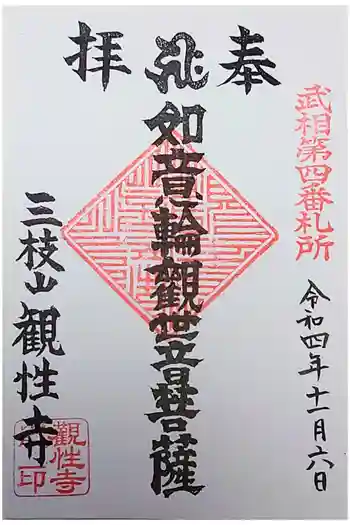 奉拝
武相第四番札所
令和四年十一月六日
如意輪観世音菩薩
三枝山観性寺
観性寺印